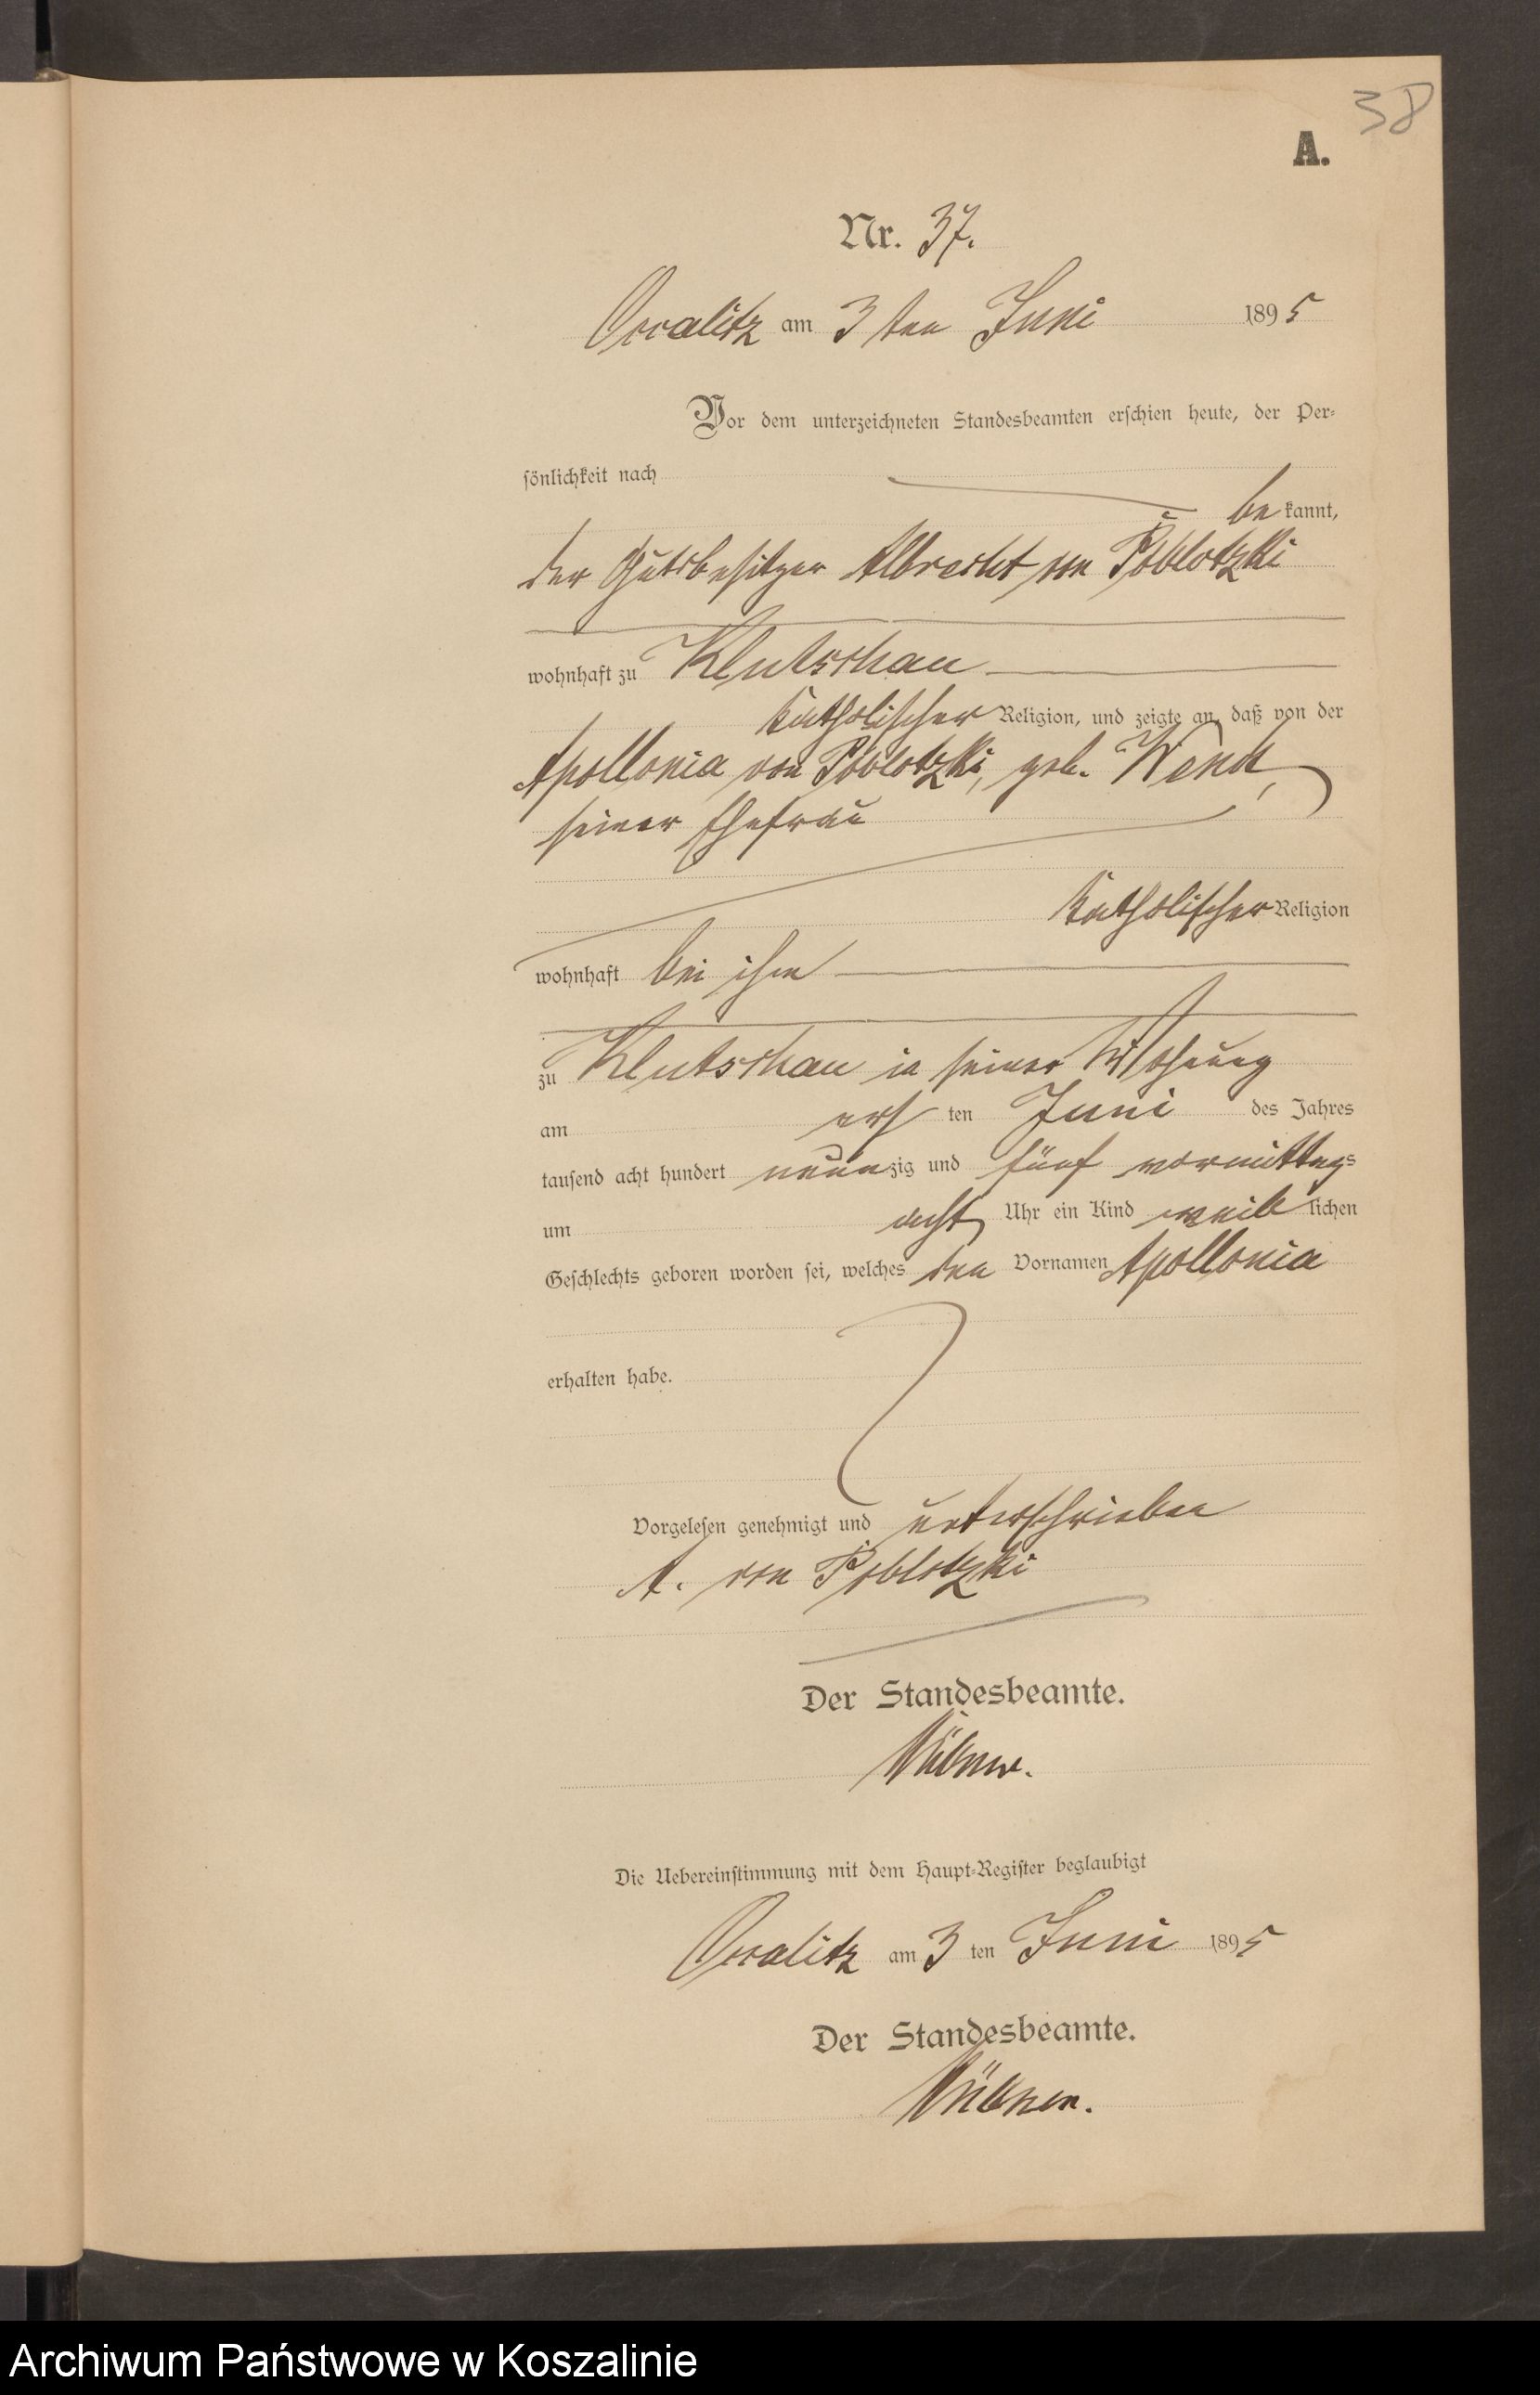 38
A.
Nr. 37.
Occalitz am 3 ten Juni 1895
Vor dem unterzeichneten Standesbeamten erschien heute, der Per-
sönlichkeit nach
be kannt,
der Gutsbesitzer Albrecht von Poblotzki
wohnhaft zu Klutschau
katholischer Religion, und zeigte an, daß von der
Apollonia von Poblotzki, geb. Wenk,
seiner Ehefrau
katholischer Religion
wohnhaft bei ihm
zu Klutschau in seiner Wohnung
am ersten Juni des Jahres
tausend acht hundert neunzig und fünf vormittags
um acht Uhr ein Kind weiblichen
Geschlechts geboren worden sei, welches den Vornamen Apollonia
erhalten habe.
Vorgelesen genehmigt und unterschrieben
A. von Poblotzki
Der Standesbeamte.
Die Uebereinstimmung mit dem Haupt-Register beglaubigt
Occalitz am 3 ten Juni 1895
Der Standesbeamte.
Archiwum Państwowe w Koszalinie